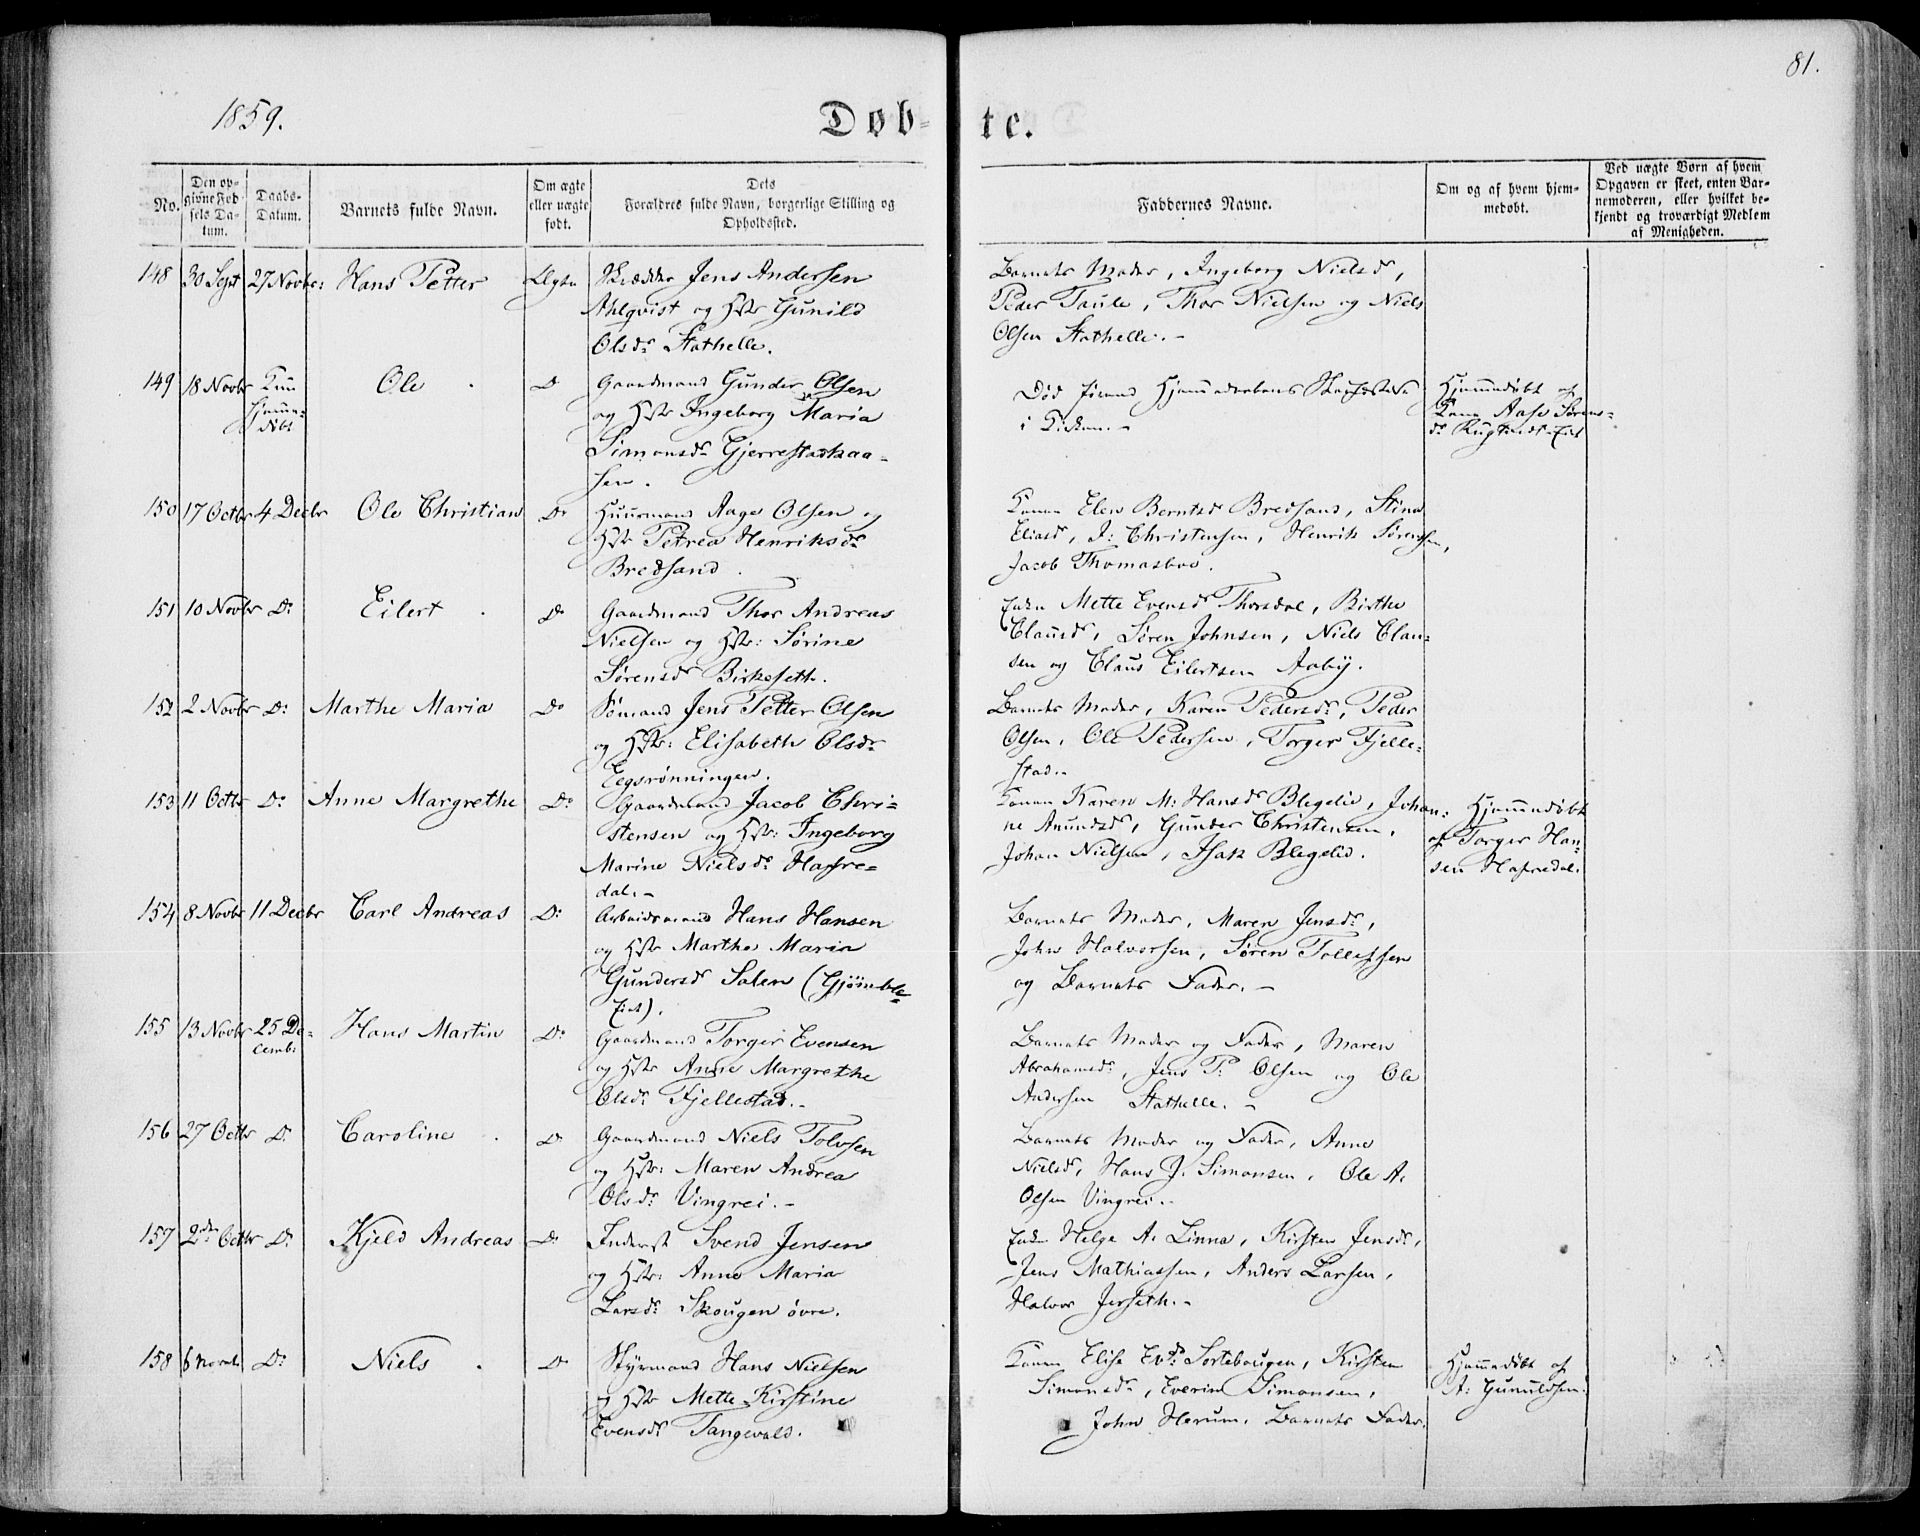 81.
1859.
Døb-
te.
No.
Den op-
givne Fød-
sels Da-
tum.
Daabs-
Datum.
Barnets fulde Navn.
Om ægte
eller uægte
født.
Dets
Forældres fulde Navn, borgerlige Stilling og
Opholdssted.
Faddernes Navne.
Om og af hvem hjem-
medøbt.
Ved uægte Børn af hvem
Opgaven er skeet, enten Bar-
nemoderen, eller hvilket be-
kjendt og troværdigt Medlem
af Menigheden.
148 30 Sept 27 Novbr: Hans Petter Ægte Skrædder Jens Andersen
Ahlqvist og Hstr Gunild
Olsdr Stathelle.
Barnets Moder, Ingeborg Nielsdr,
Peder Taule, Thor Nielsen og Niels
Olsen Stathelle.-
149 18 Novbr Kun
Hjemme-
døbt
Ole Do Gaardmand Gunder Olsen
og Hstr Ingeborg Maria
Simonsdr Gjerrestadkaa-
sen.
Død førend Hjemmedaabens Stadfæstelse
i Kirken.-
Hjemmedøbt af
Kone Aase Sørens-
dr Eiet
150 17 Octbr 4 Decbr Ole Christian Do Huusmand Aage Olsen og
Hstr Petrea Henriksdr
Bredsand.
Konen Elen Berntsdr Bredsand, Stina
Eliasdr, J: Christensen, Henrik Sørensen,
Jacob Thomasboe.
151 10 Novbr Do Eilert Do Gaardmand Thor Andreas
Nielsen og Hstr: Sørine
Sørensdr Birkeseth.
Enke Mette Evensdr Thorsdal, Birthe
Clausdr, Søren Johnsen, Niels Clau-
sen og Claus Eilertsen Aaby.
152 2 Novbr Do: Marthe Maria Do Sømand Jens Petter Olsen
og Hstr: Elisabeth Olsdr
Eegsrønningen.
Barnets Moder, Karen Pedersdr, Peder
Olsen, Ole Pedersen, Torger Fjelle-
stad.-
153 11 Octbr Do: Anne Margrethe Do: Gaardmand Jacob Chri-
stensen og Hstr: Ingeborg
Marine Nielsdr Hafre-
dal.-
Konen Karen M: Hansdr Blegelid, Johan-
ne Anundsdr, Gunder Christensen,
Johan Nielsen, Isak Blegelid.
Hjemmedøbt
af Torger Han-
sen Hafredal.
154 8 Novbr 11 Decbr Carl Andreas Do: Arbeidsmand Hans Hansen
og Hstr Marthe Maria
Gundersdr Salen (Gjømle-
Eiet).
Barnets Moder, Maren Jensdr,
John Halvorsen, Søren Tollefsen
og Barnets Fader.-
155 13 Novbr 25 De-
cembr
Hans Martin Do: Gaardmand Torger Evensen
og Hstr Anne Margrethe
Olsdr Fjellestad.-
Barnets Moder og Fader, Maren
Abrahamsdr, Jens P. Olsen og Ole
Andersen Stathelle.-
156 27 Octbr Do Caroline Do Gaardmand Niels Tolvsen
og Hstr: Maren Andrea
Olsdr Vingrei.-
Barnets Moder og Fader, Anne
Nielsdr, Hans J. Simonsen, Ole A.
Olsen Vingrei.-
157 2den Octbr Do Kjeld Andreas Do Inderst Svend Jensen
og Hstr: Anne Maria
Larsdr: Skougen øvre.
Enke Helge A. Linna, Kirsten Jensdr,
Jens Mathiassen, Anders Larsen,
Halvor Jerseth.-
158 6 Novbr Do: Niels Do Styrmand Hans Nielsen
og Hstr Mette Kirstine
Evensdr Tangevald.
Konen Elise Evdr Sortebougen, Kirsten
Simonsdr, Everin Simonsen,
John Herum, Barnets Fader.
Hjemmedøbt af
A: Gunuldsen.